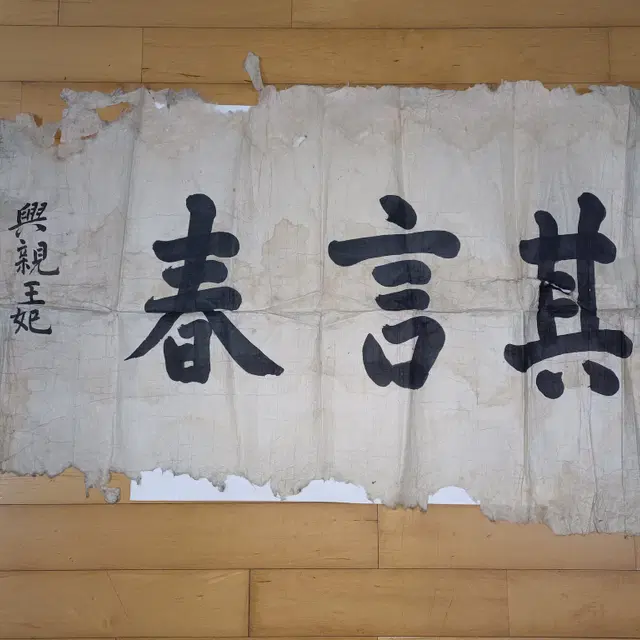 其言春
興親王妃